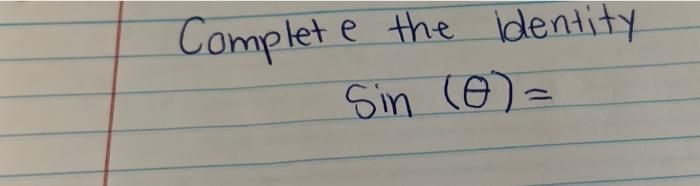 Complete the identity
Sin (θ) =